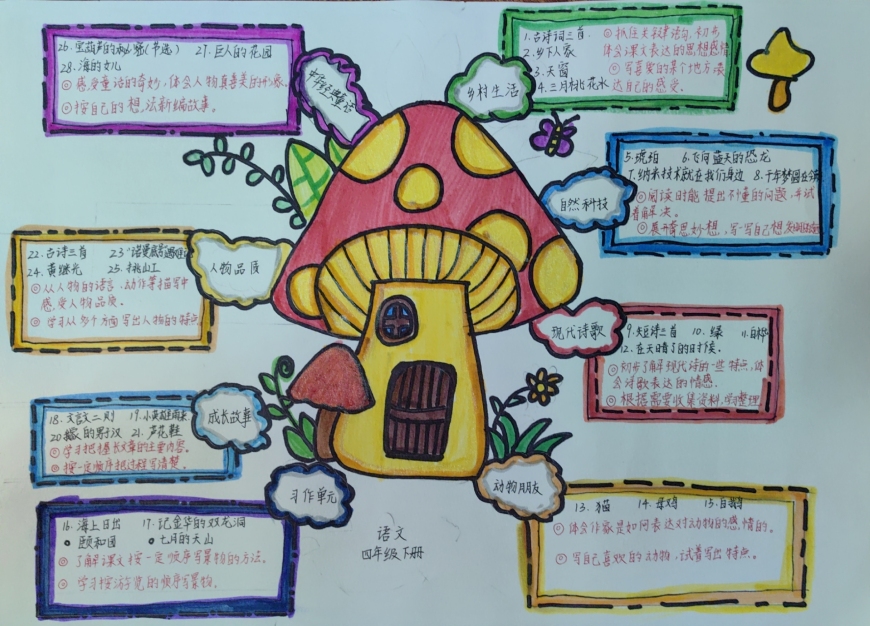 26.宝葫芦的秘密(节选) 27.巨人的花园
28.海的女儿
◎感受童话的奇妙,体会人物真善美的形象。
◎按自己的想法新编故事。
中外经典童话
乡村生活
1.古诗词三首
2.乡下人家
3.天窗
4.三月桃花水
◎抓住关键语句,初步
体会课文表达的思想感情
◎写喜爱的某个地方表
达自己的感受。
自然科技
5.琥珀 6.飞向蓝天的恐龙
7.纳米技术就在我们身边 8.千年梦圆在今朝
◎阅读时能提出不懂的问题,并试
着解决。
◎展开奇思妙想,写一写自己想发明的东西
人物品质
22.古诗三首 23.
24.黄继光 25.挑山工
◎从人物的语言、动作等描写中
感受人物品质。
◎学习从多个方面写出人物的特点
现代诗歌
9.短诗三首 10.绿 11.白桦
12.在天晴了的时候。
◎初步了解现代诗的一些特点,体
会诗歌表达的情感。
◎根据需要收集资料,学习整理
成长故事
18.文言文二则 19.小英雄雨来
20.我们家的男子汉 21.芦花鞋
◎学习把握长文章的主要内容。
◎按一定顺序把过程写清楚。
习作单元
16.海上日出 17.记金华的双龙洞
●颐和园 ●七月的天山
◎了解课文按一定顺序写景物的方法。
◎学习按游览的顺序写景物。
动物朋友
13.猫 14.母鸡 15.白鹅
◎体会作家是如何表达对动物的感情的。
◎写自己喜欢的动物,试着写出特点。
语文
四年级下册